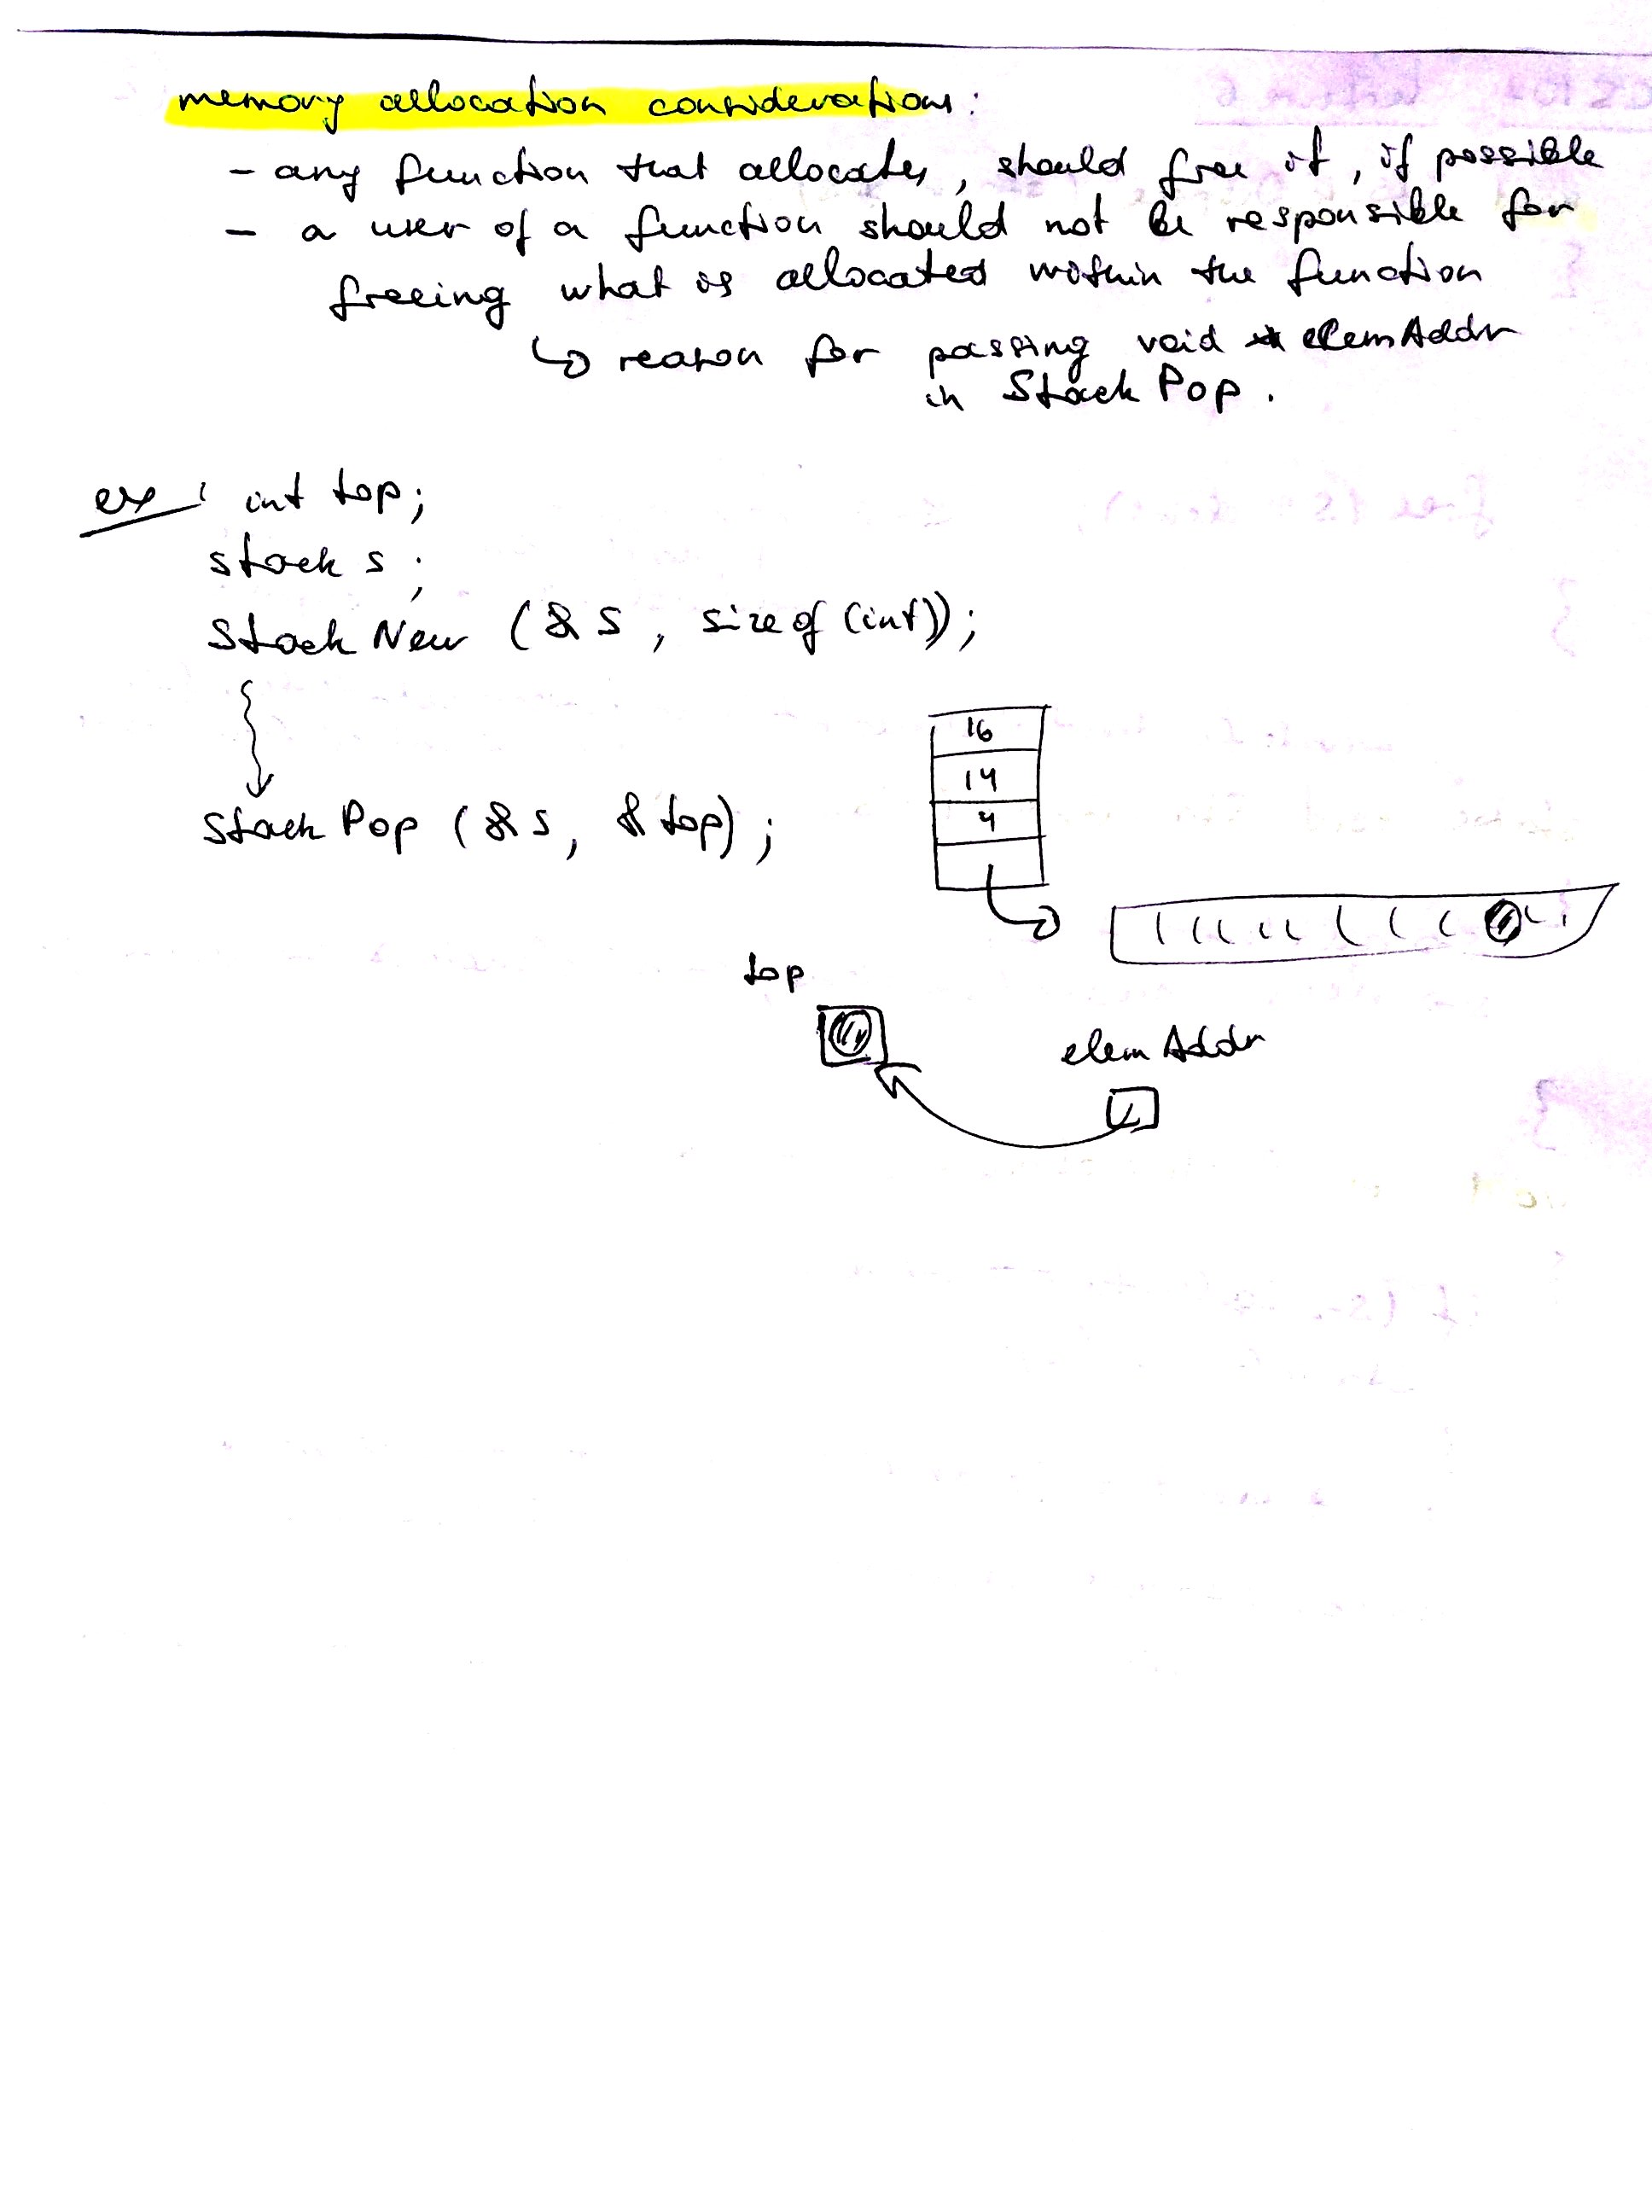 memory allocation considerations:
- any function that allocates, should free it, if possible
- a user of a function should not be responsible for
freeing what is allocated within the function
↳ reason for passing void * elemAddr
in Stack Pop.
ex: int top;
stack s;
Stack New (&s, sizeof(int));
Stack Pop (&s, &top);
16
14
4
top
elem Addr